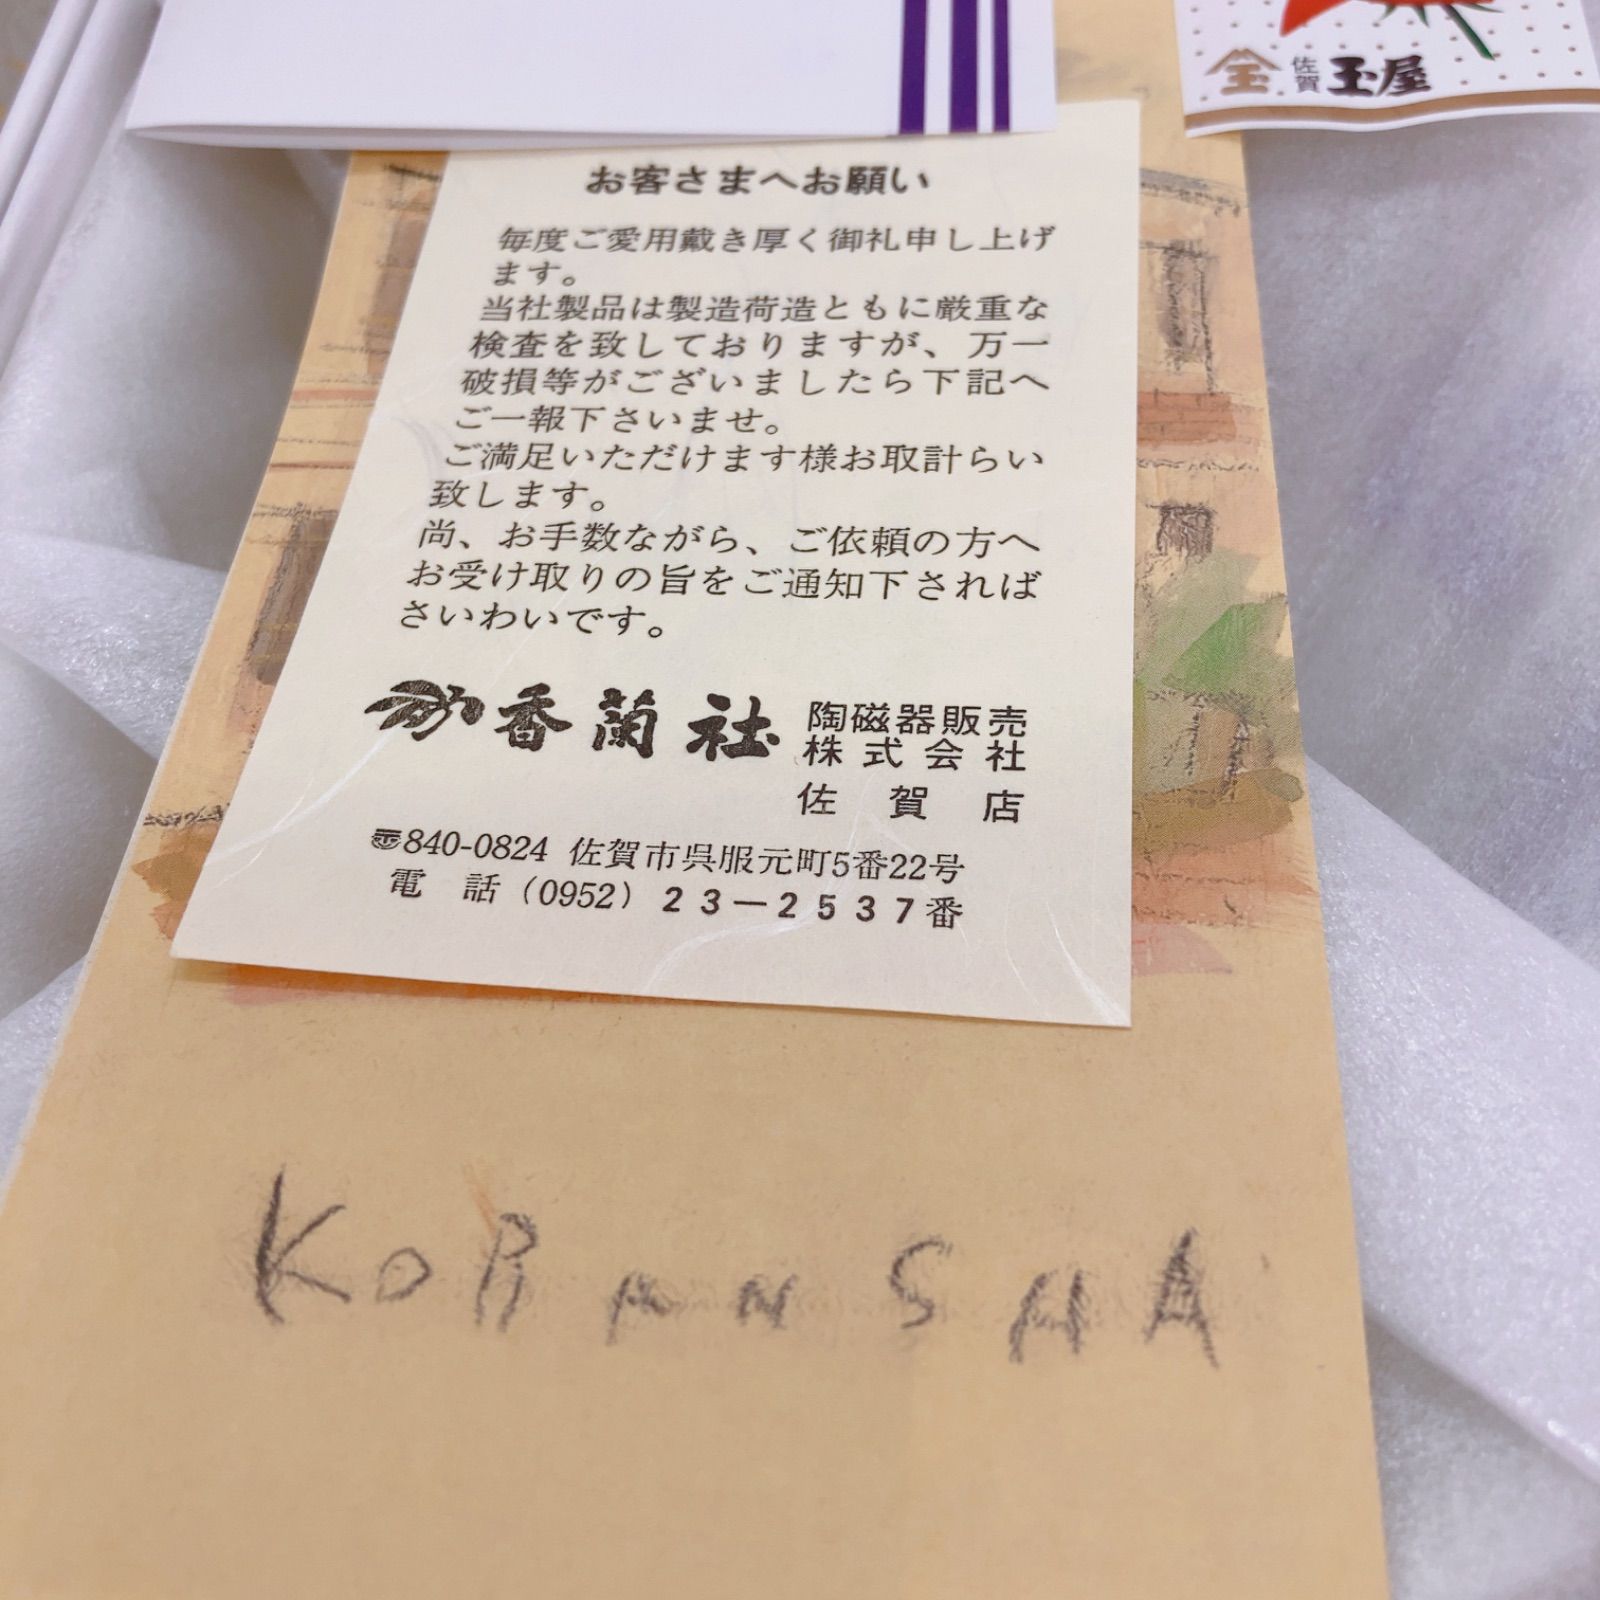 佐賀 玉屋
お客さまへお願い
毎度ご愛用戴き厚く御礼申し上げ
ます。
当社製品は製造荷造ともに厳重な
検査を致しておりますが、万一
破損等がございましたら下記へ
ご一報下さいませ。
ご満足いただけます様お取計らい
致します。
尚、お手数ながら、ご依頼の方へ
お受け取りの旨をご通知下されば
さいわいです。
香蘭社 陶磁器販売
株式会社
佐賀店
〒840-0824 佐賀市呉服元町5番22号
電話(0952)23-2537番
KORANSHA